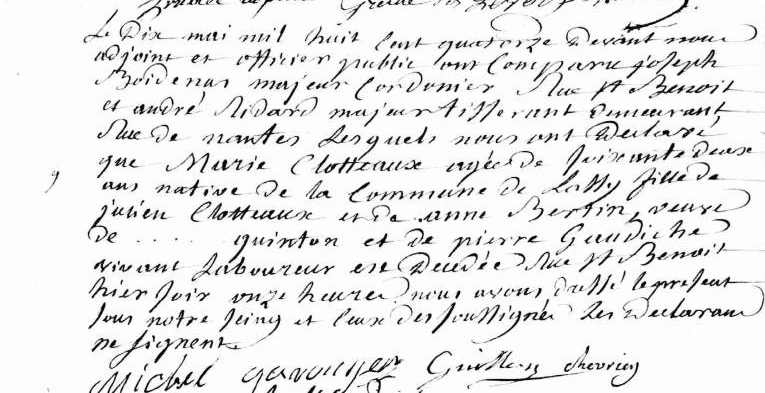 Le Dix mai mil huit Cent quatorze Devant nous
adjoint et officier public ont Comparu joseph
Boidenas majeur Cordonier Rue St Benoit
et andré Ridard majeur tisserant Demeurant
Rue de nantes Lesquels nous ont Declaré
que Marie Clotteaux agée de soixante deux
ans native de la Commune de Lassy fille de
julien Clotteaux et de anne Bertin, veuve
de ..... quinton et de pierre Gaudiche
vivant Laboureur est Decedée Rue St Benoit
hier soir onze heures nous avons dressé le present
sous notre seing et Ceux des soussignés Les Declarans
ne signent
Michel Guillou chevrier